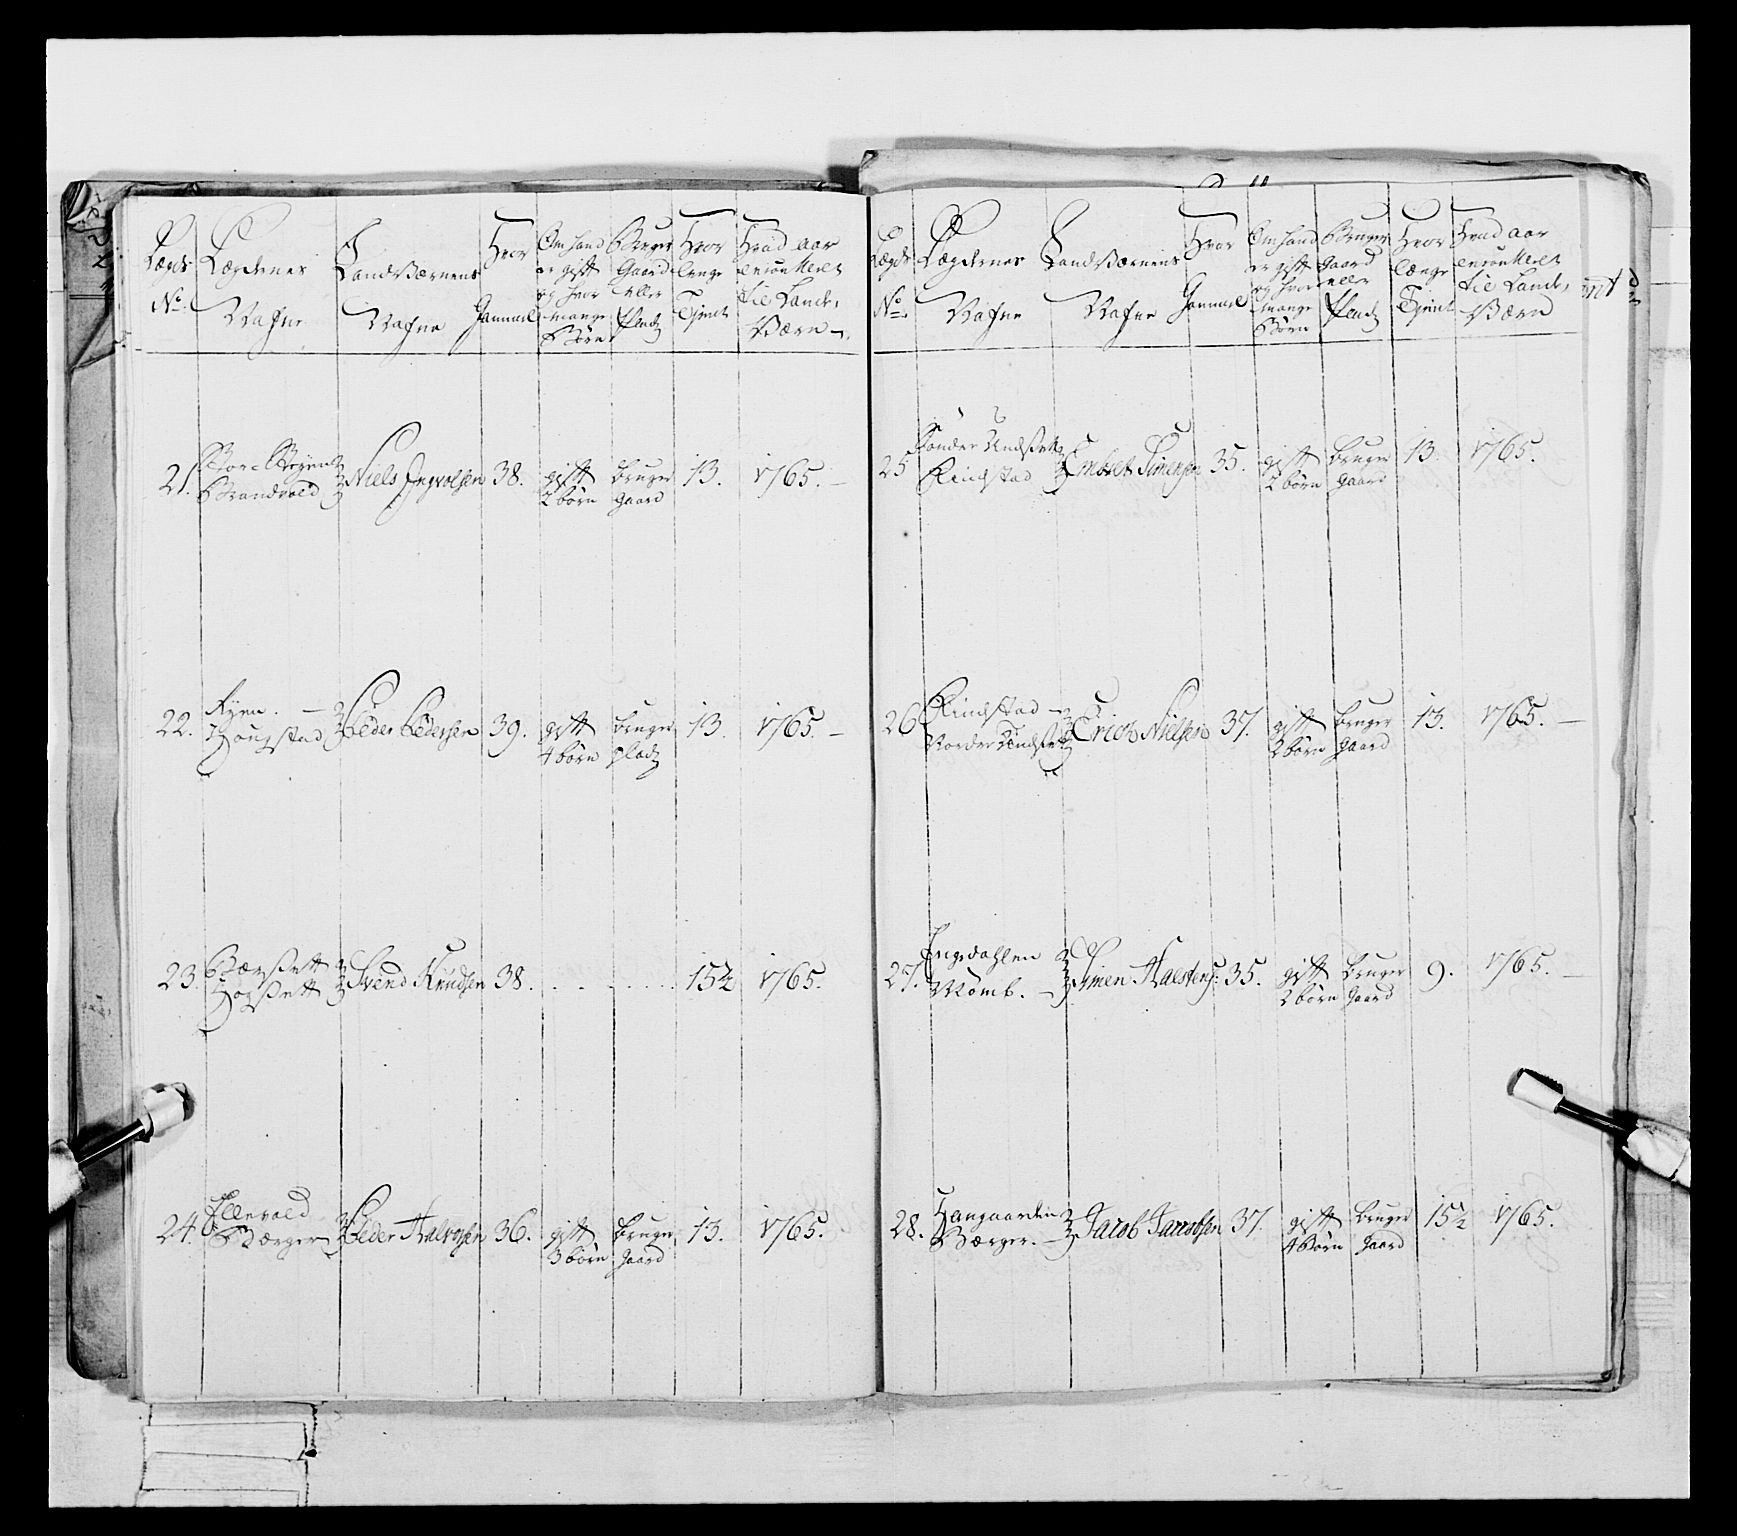 Lægds
No
Lægdernes
Nafne
Landværnens
Nafne
Hvor
Gammel
Om hand
er gift
og hvor
mange
Børn
Bruger
Gaard
eller
Plads
Hvor
længe
Tjent
Hvad aar
enroulleret
til Land-
Værn
21. Brandvold Niels Ingvolsen 38. gift 2 børn bruger gaard 13. 1765.
22. Ryen Hougstad Peder Pedersen 39. gift 4 børn bruger plads 13. 1765.
23. Svend Knudsen 38. 15½ 1765.
24. Ellevold Berger Peder Halvorsen 36. gift 3 børn bruger gaard 13. 1765.
Lægds
No
Lægdernes
Nafne
Landværnens
Nafne
Hvor
Gammel
Om hand
er gift
og hvor
mange
Børn
Bruger
gaard
eller
Plads
Hvor
længe
Tjent
Hvad aar
enroulleret
til Land-
Værn
25. Sønder Undset Rindstad Embret Simensen 35. gift 2 børn bruger gaard 13. 1765.
26. Rindstad Norder Undset Erich Nielsen 37. gift 2 børn bruger gaard 13. 1765.
27. Engedahlen Momb. Simen Halstens: 35. gift 2 børn bruger gaard 9. 1765.
28. Haugaarden Berger. Jacob Jacobsen 37. gift 4 børn bruger gaard 15½ 1765.